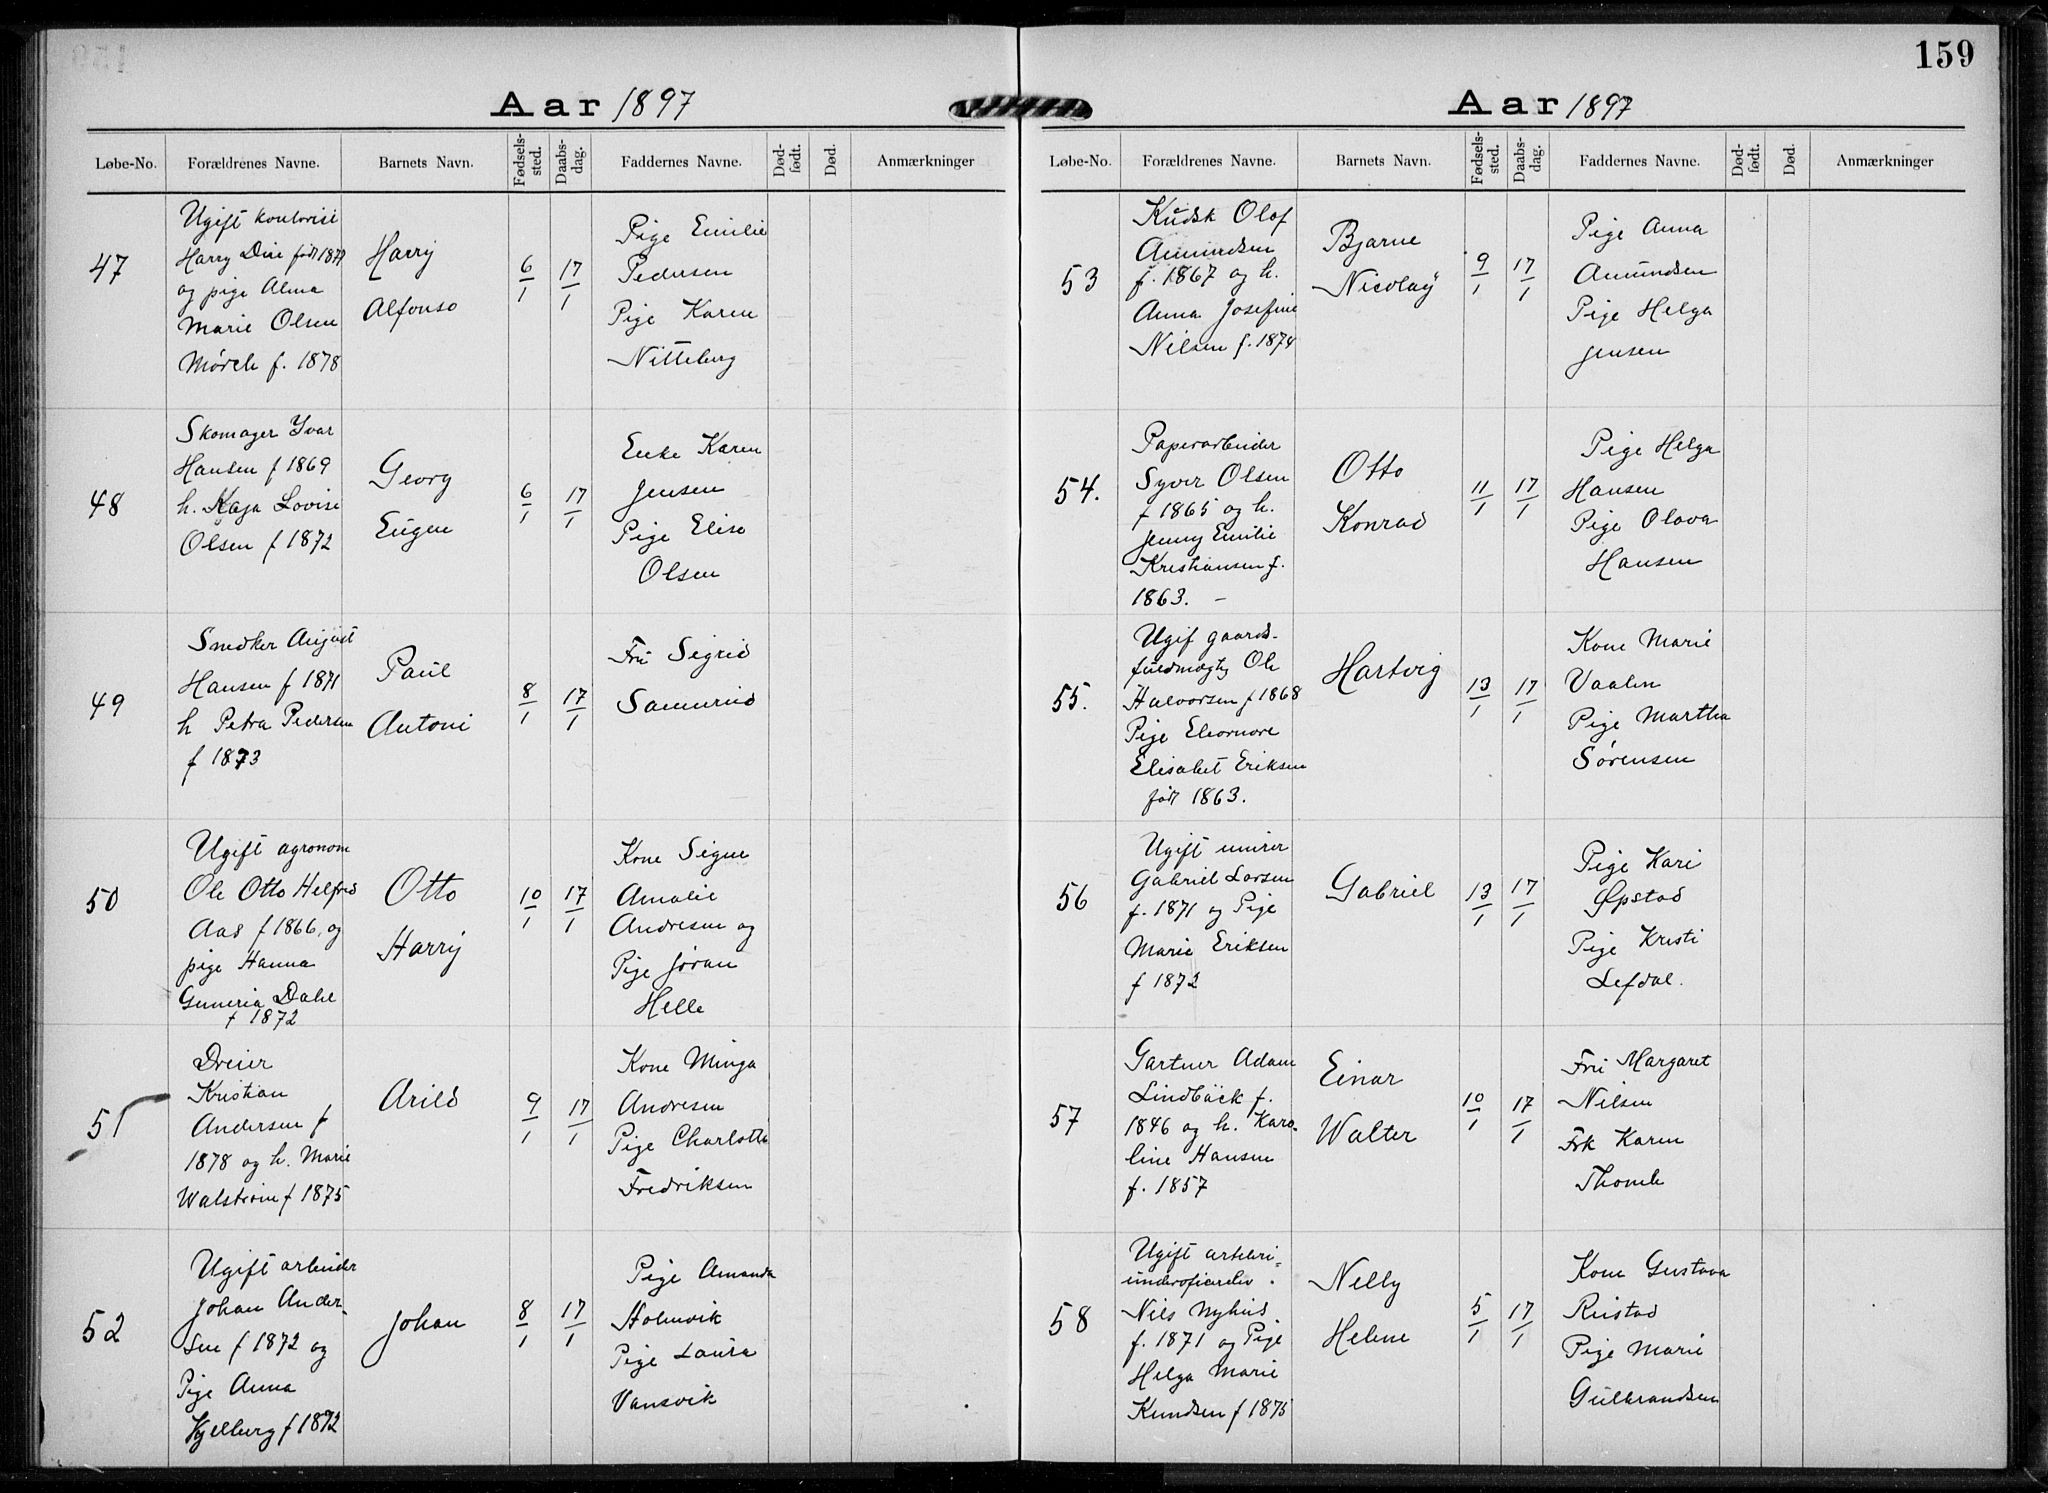 159
Aar 1897
Løbe-No.
Forældrenes Navne.
Barnets Navn.
Fødsels-
sted.
Daabs-
dag.
Faddernes Navne.
Død-
født.
Død.
Anmærkninger
47
Ugift kontorist
Harry Due født 1877
og pige Alma
Marie Olsen
Mørch f. 1878
Harry
Alfonso
6/1
17/1
Pige Emilie
Pedersen
Pige Karen
Nitteberg
48
Skomager Yvar
Hansen f 1869
h. Kaja Lovise
Olsen f 1872
Georg
Eugen
6/1
17/1
Enke Karen
Jensen
Pige Elise
Olsen
49
Snedker August
Hansen f 1871
h Petra Pedersen
f 1873
Paul
Antoni
8/1
17/1
Fru Sigrid
50
Ugift agronom
Ole Otto Helfred
Aas f 1866, og
pige Hanna
Guneria Dahl
f 1872
Otto
Harry
10/1
17/1
Kone Signe
Amalie
Andresen og
Pige Jøran
Helle
51
Dreier
Kristian
Andersen f
1878 og h. Marie
Walstrøm f 1875
Arild
9/1
17/1
Kone Minga
Andresen
Pige Charlotte
Fredriksen
52
Ugift arbeider
Johan Ander-
sen f 1872 og
Pige Anna
Kjelberg f 1872
Johan
8/1
17/1
Pige Amanda
Holmvik
Pige Laura
Vansvik
Aar 1897
Løbe-No.
Forældrenes Navne.
Barnets Navn.
Fødsels-
sted.
Daabs-
dag.
Faddernes Navne.
Død-
født.
Død.
Anmærkninger
53
Kudsk Olaf
Amundsen
f. 1867 og h.
Anna Josefine
Nilsen f. 1874
Bjarne
Nicolay
9/1
17/1
Pige Anna
Amundsen
Pige Helga
Jensen
54.
Papirarbeider
Syver Olsen
f 1865 og h.
Jenny Emilie
Kristiansen f.
1863. -
Otto
Konrad
11/1
17/1
Pige Helga
Hansen
Pige Olava
Hansen
55.
Ugif gaards-
fuldmægtig Ole
Halvorsen f 1868
Pige Eleornore
Elisabet Eriksen
født 1863.
Hartvig
13/1
17/1
Kone Marie
Vaalen
Pige Martha
Sørensen
56
Ugift murer
Gabriel Larsen
f. 1871 og Pige
Marie Eriksen
f 1872
Gabriel
13/1
17/1
Pige Kari
Øpstad
Pige Kristi
Lefdal.
57
Gartner Adam
Lindbäck f.
1846 og h. Karo-
line Hansen
f. 1857
Einar
Walter
10/1
17/1
Fru Margaret
Nilsen
Frk Karen
58
Ugift artileri-
Nils Nyhus
f. 1871 og Pige
Helga Marie
Knudsen f 1875
Nelly
Helene
5/1
17/1
Kone Gustava
Rustad
Pige Marie
Gulbrandsen